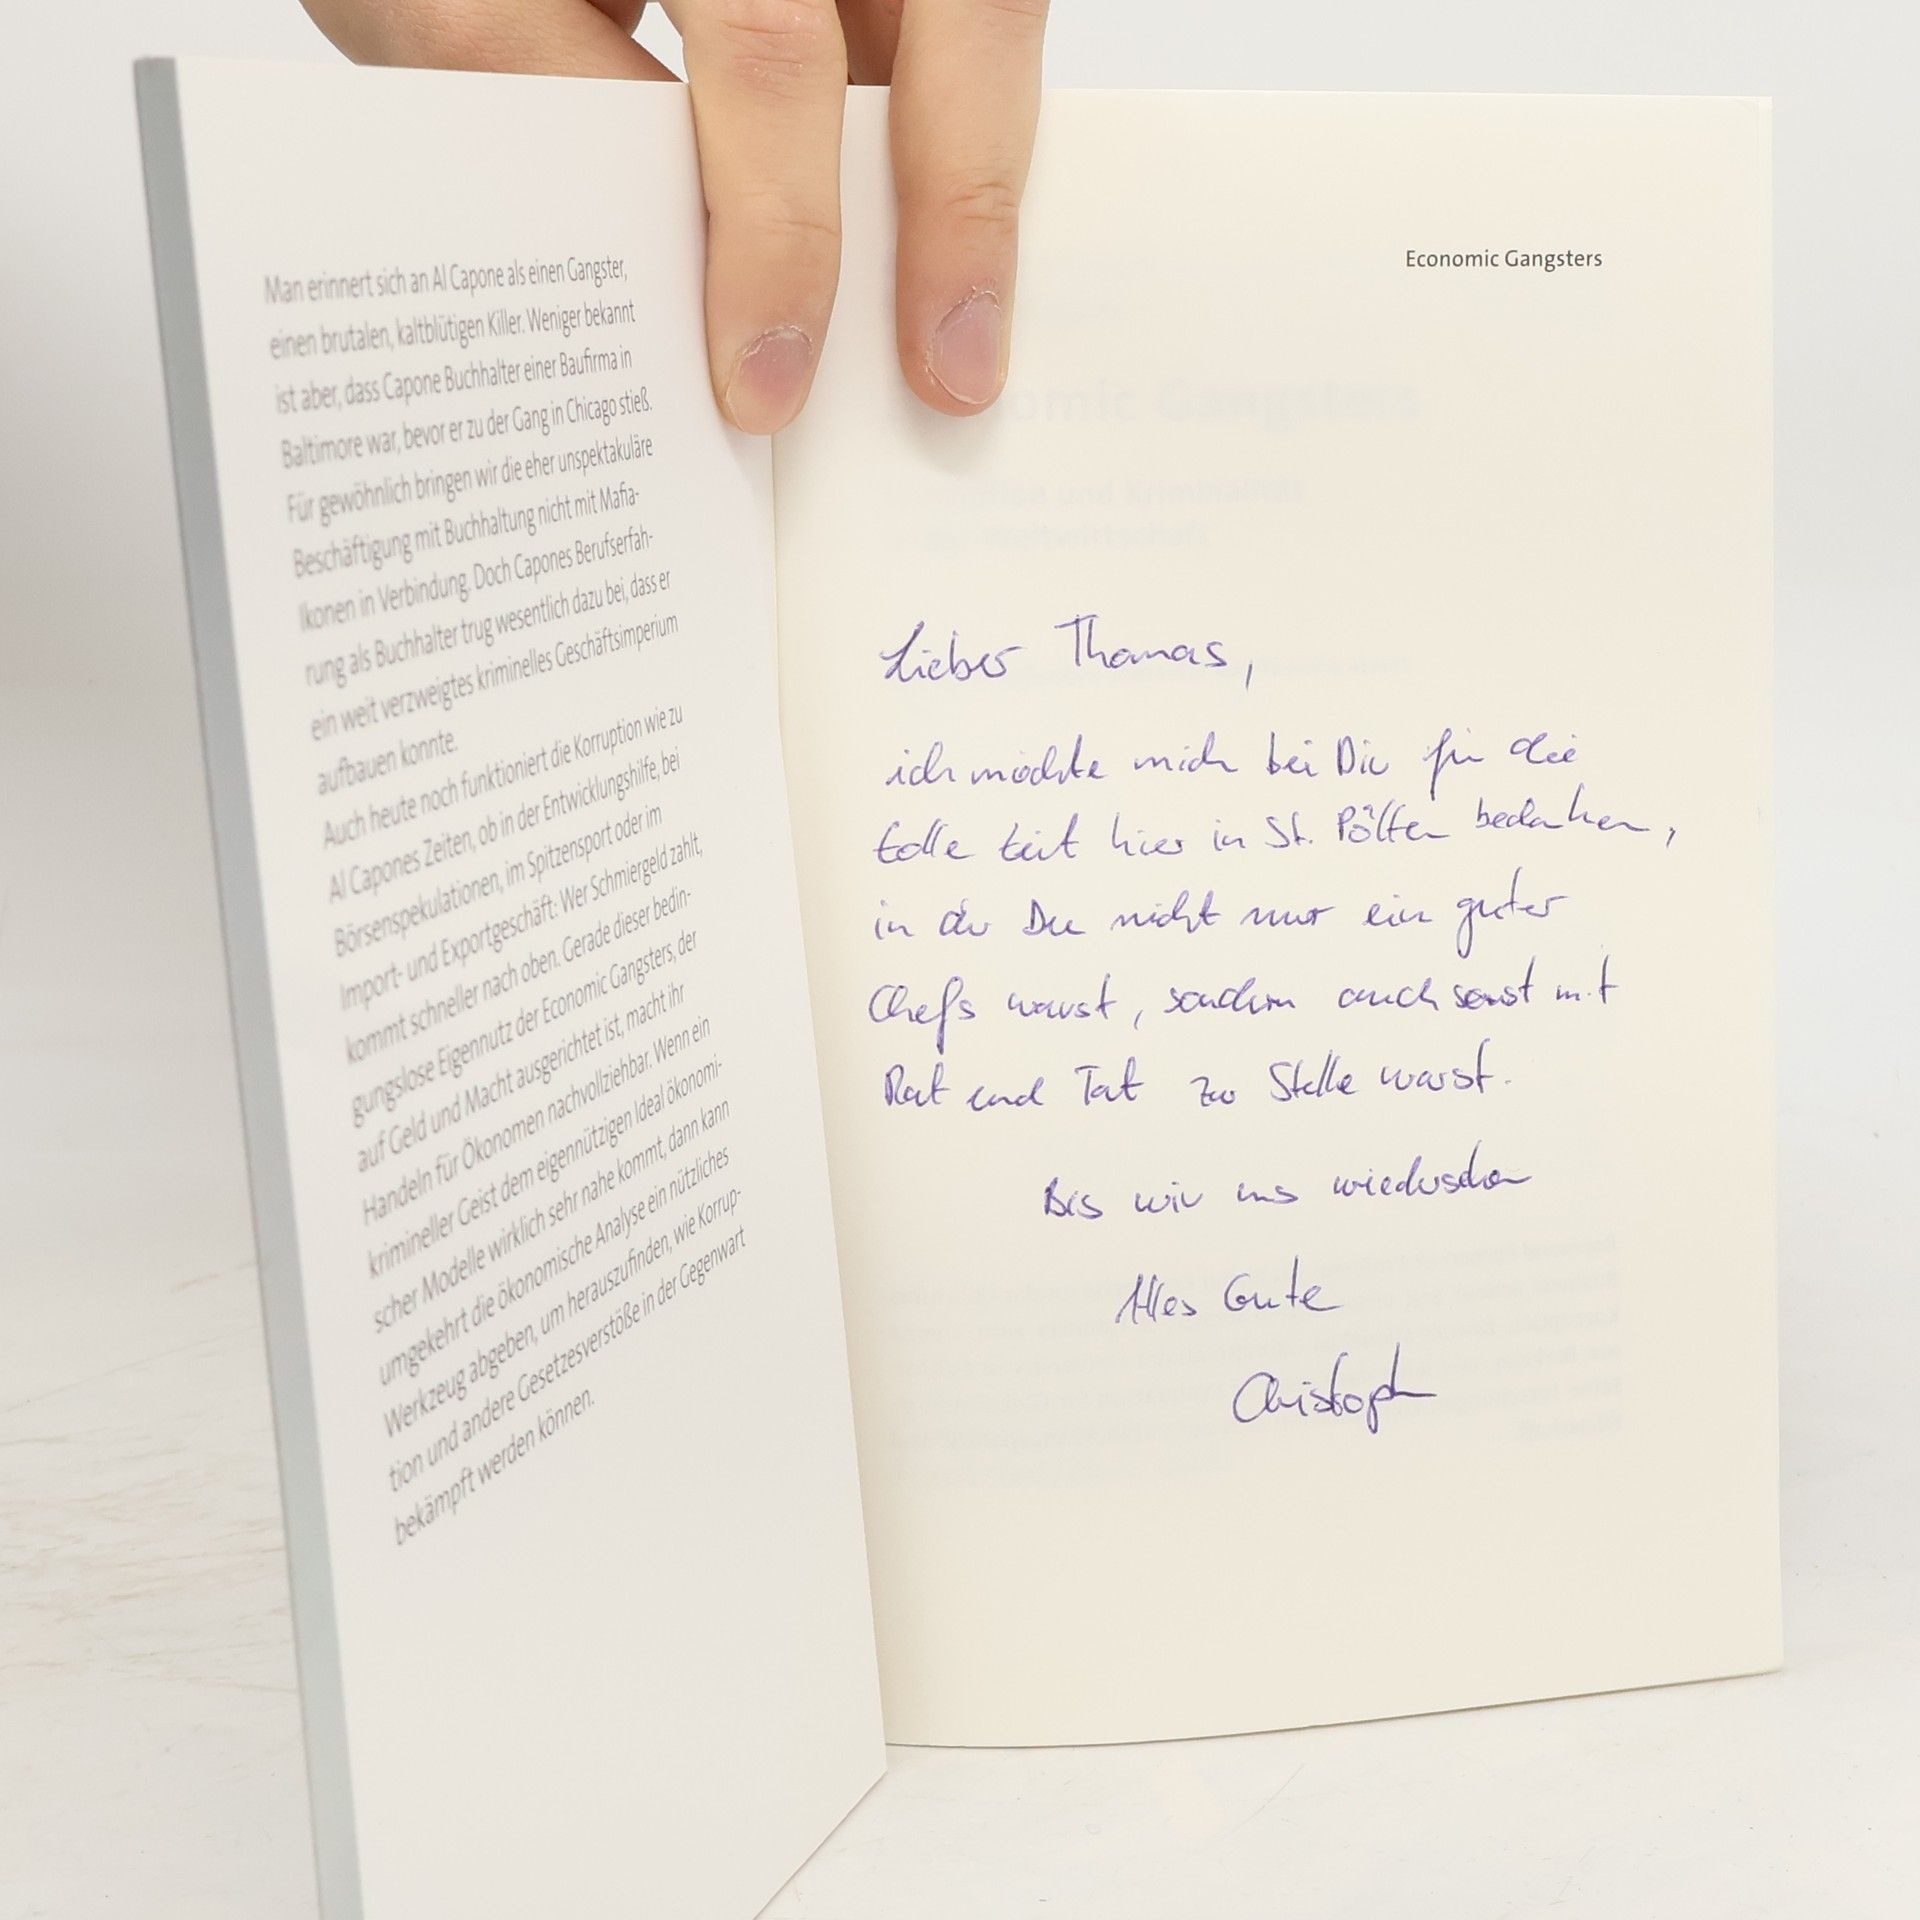 Man erinnert sich an Al Capone als einen Gangster,
einen brutalen, kaltblütigen Killer. Weniger bekannt
ist aber, dass Capone Buchhalter einer Baufirma in
Baltimore war, bevor er zu der Gang in Chicago stieß.
Für gewöhnlich bringen wir die eher unspektakuläre
Beschäftigung mit Buchhaltung nicht mit Mafia-
Ikonen in Verbindung. Doch Capones Berufserfah-
rung als Buchhalter trug wesentlich dazu bei, dass er
ein weit verzweigtes kriminelles Geschäftsimperium
aufbauen konnte.
Auch heute noch funktioniert die Korruption wie zu
Al Capones Zeiten, ob in der Entwicklungshilfe, bei
Börsenspekulationen, im Spitzensport oder im
Import- und Exportgeschäft: Wer Schmiergeld zahlt,
kommt schneller nach oben. Gerade dieser bedin-
gungslose Eigennutz der Economic Gangsters, der
auf Geld und Macht ausgerichtet ist, macht ihr
Handeln für Ökonomen nachvollziehbar. Wenn ein
krimineller Geist dem eigennützigen Ideal ökonomi-
scher Modelle wirklich sehr nahe kommt, dann kann
umgekehrt die ökonomische Analyse ein nützliches
Werkzeug abgeben, um herauszufinden, wie Korrup-
tion und andere Gesetzesverstöße in der Gegenwart
bekämpft werden können.
Economic Gangsters
Lieber Thomas,
ich möchte mich bei Dir für die
tolle Zeit hier in St. Pölten bedanken,
in der Du nicht nur ein guter
Chefs warst, sondern auch sonst mit
Rat und Tat zur Stelle warst.
Bis wir uns wiedersehen
Alles Gute
Christoph